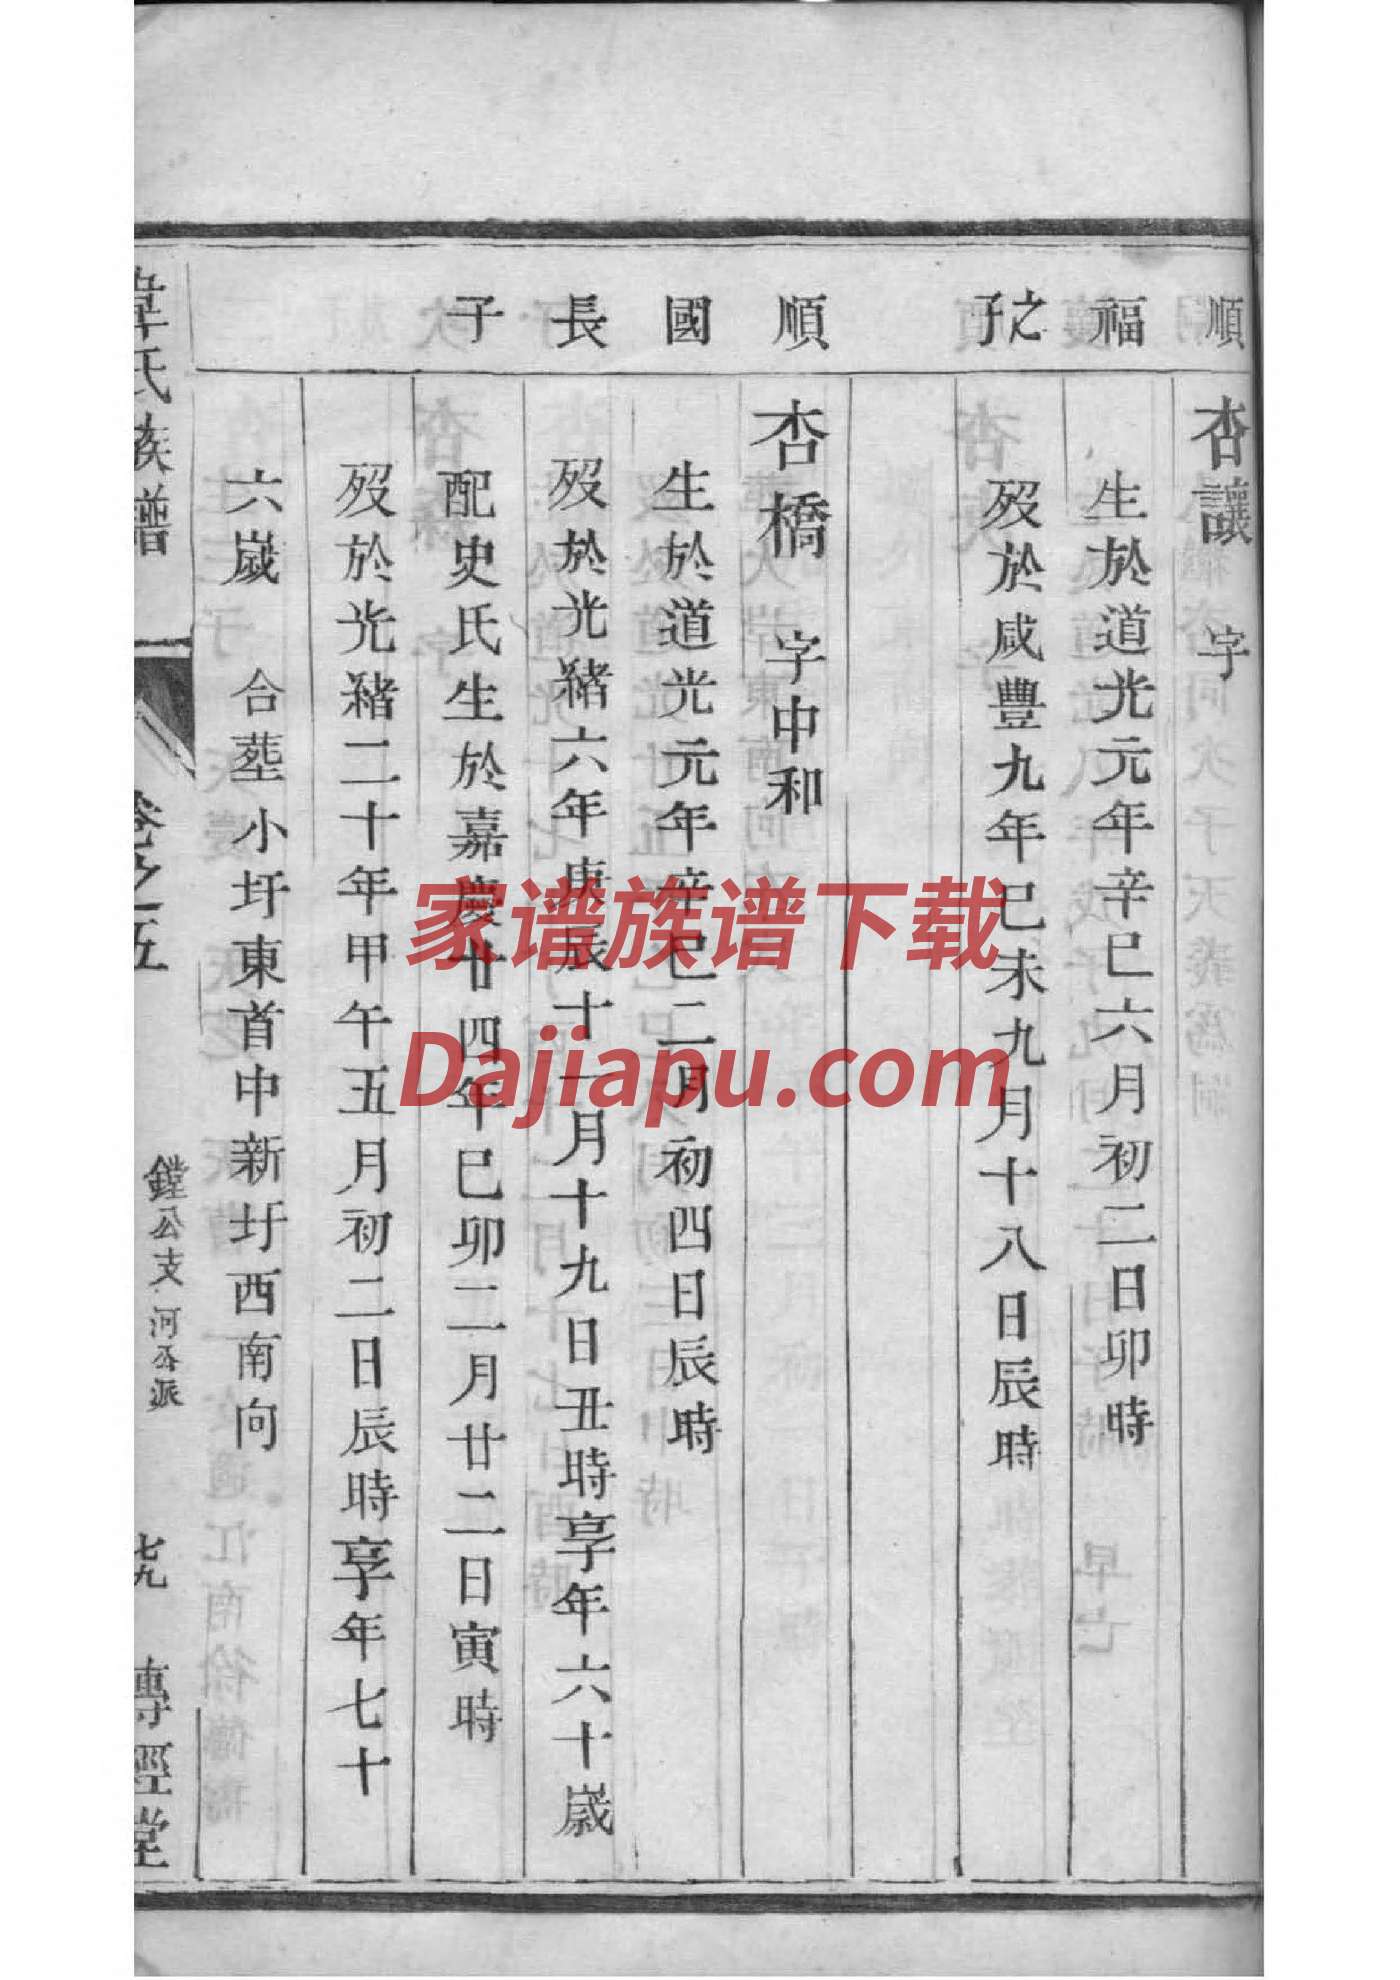 順 杏讓 字
福 生於道光元年辛巳六月初二日卯時
之子 歿於咸豐九年巳未九月十八日辰時
順 杏橋 字中和
國 生於道光元年辛巳二月初四日辰時
長 歿於光緒六年庚辰十一月十九日丑時享年六十歲
子 配史氏生於嘉慶廿四年巳卯二月廿二日寅時
歿於光緒二十年甲午五月初二日辰時享年七十
六歲 合塟小圩東首中新圩西南向
韋氏族譜 卷之五 鏜公支河公派 七九 傳經堂
家谱族谱下载
Dajiapu.com